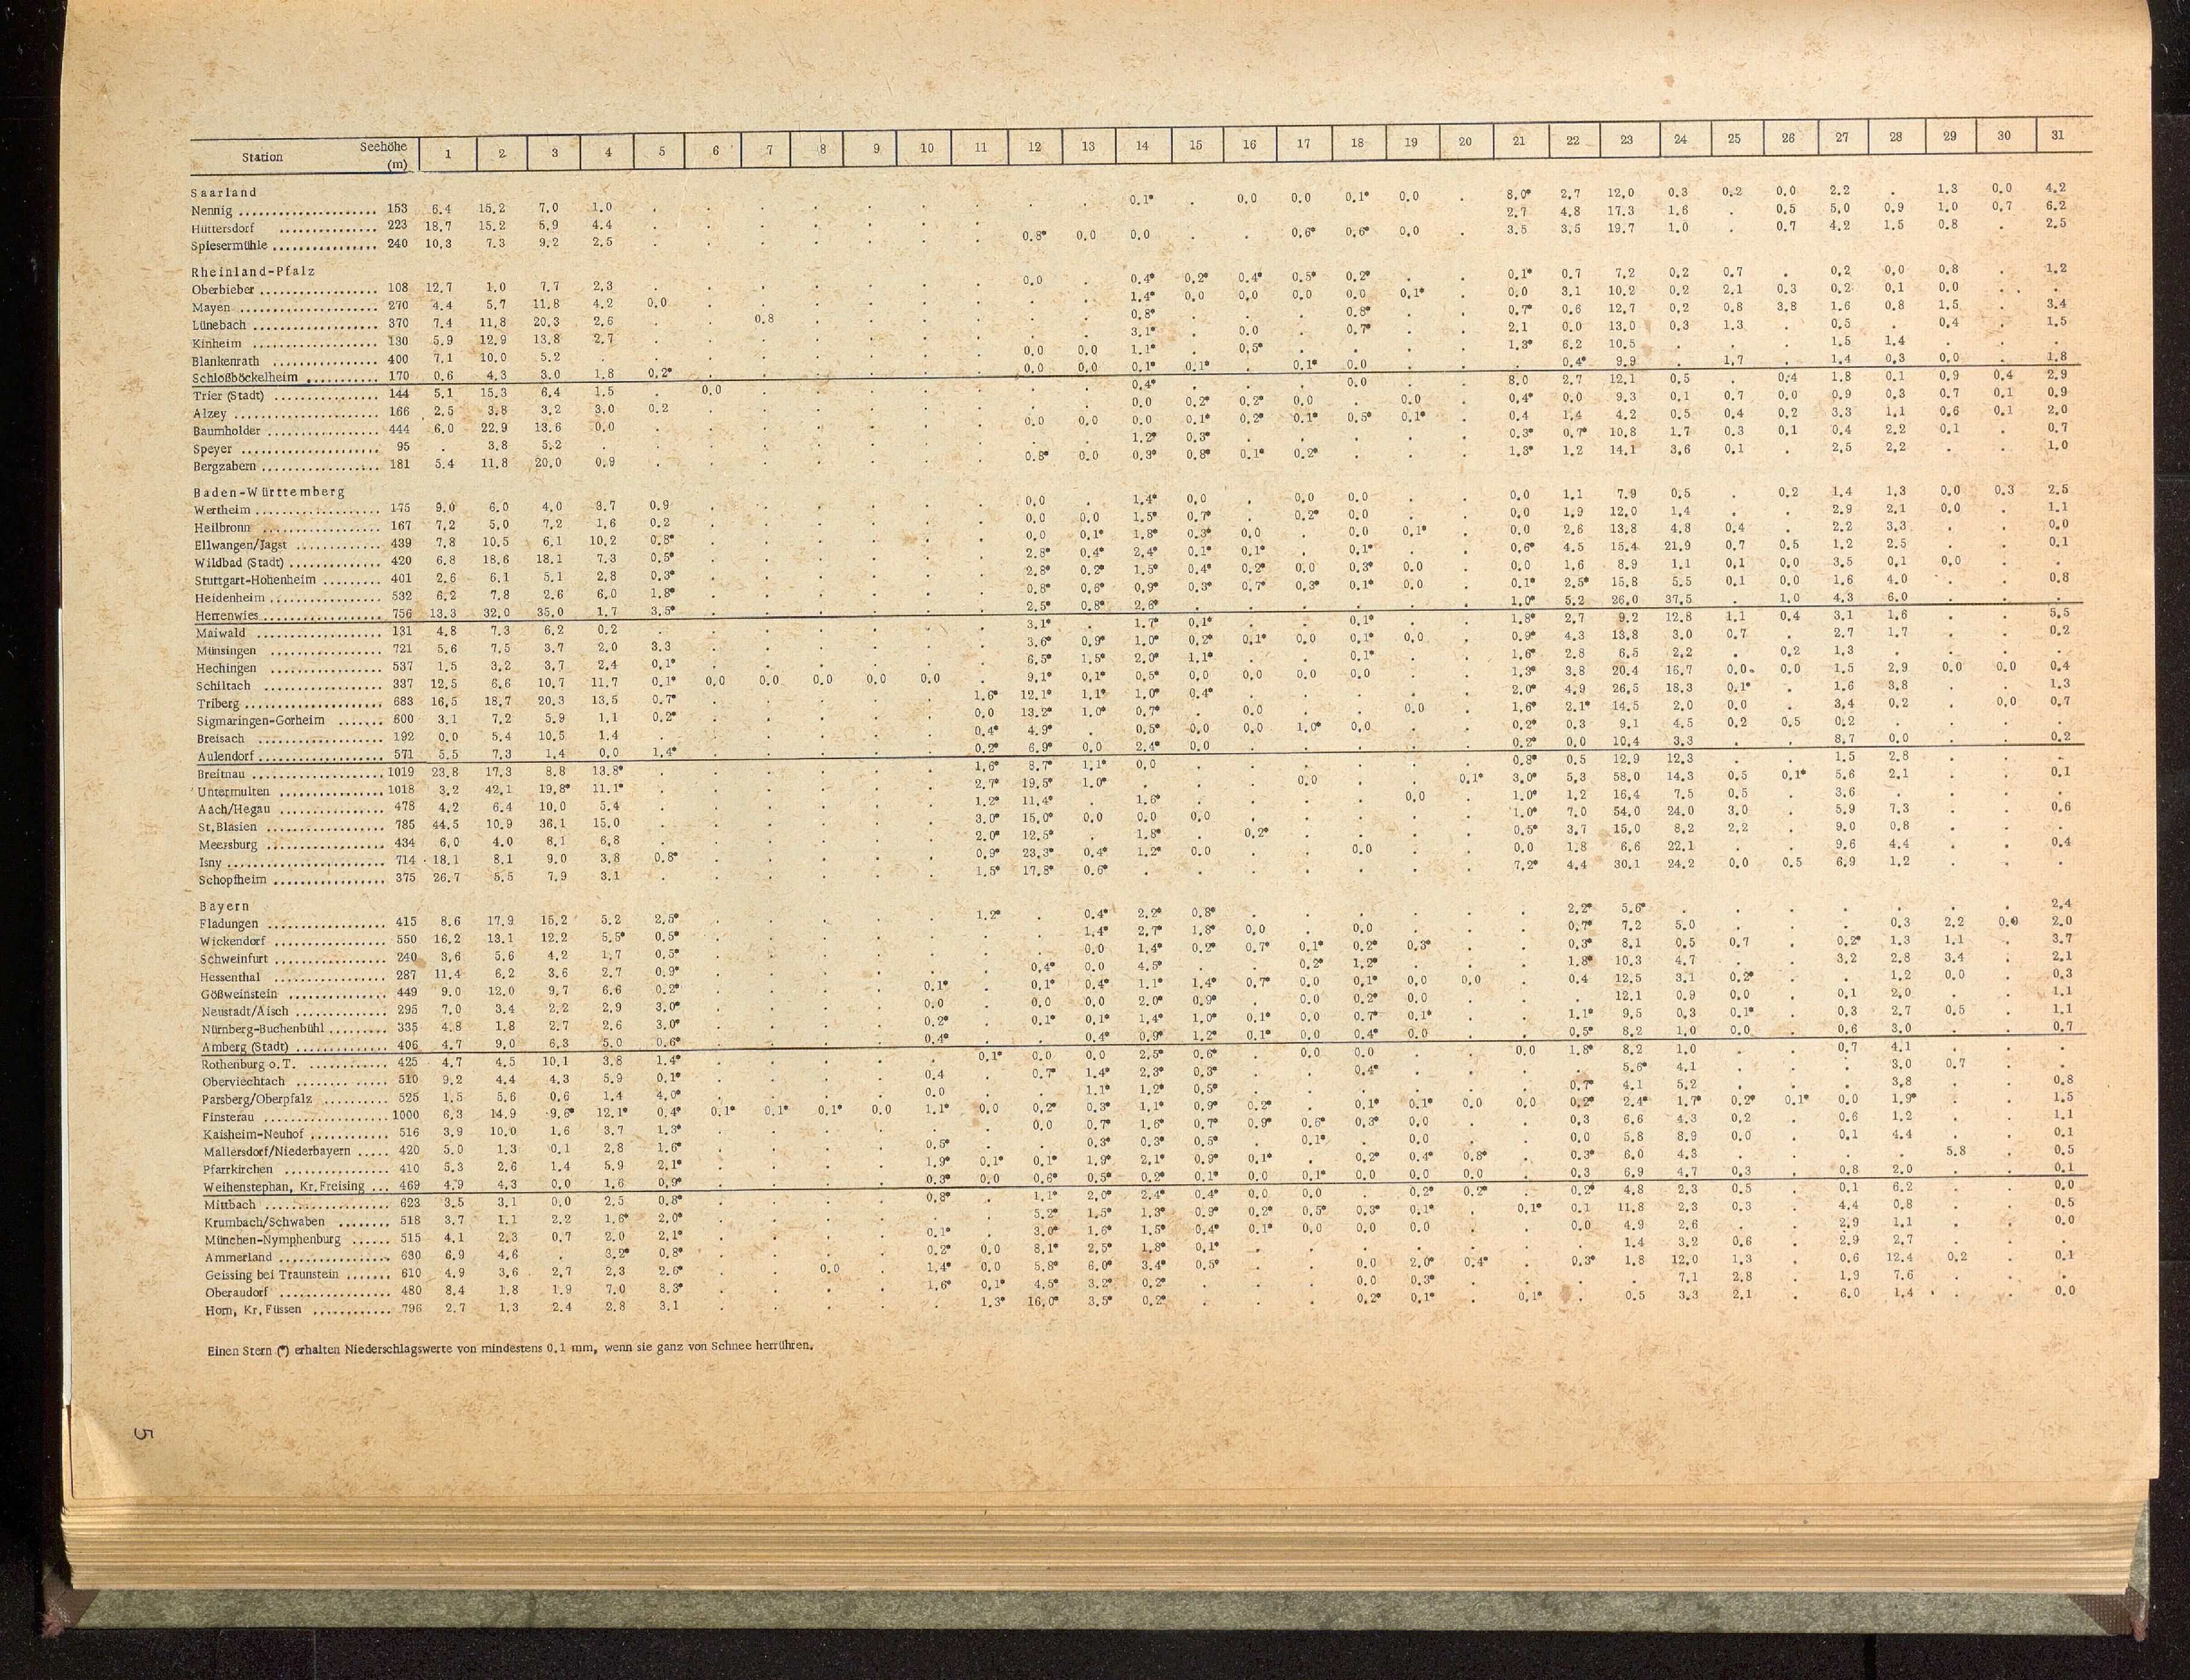 Station Seehöhe (m) 1 2 3 4 5 6 7 8 9 10 11 12 13 14 15 16 17 18 19 20 21 22 23 24 25 26 27 28 29 30 31
Saarland
Nennig 153 6.4 15.2 7.0 1.0 . . . . . . . . . 0.1* . 0.0 0.0 0.1* 0.0 . 8.0* 2.7 12.0 0.3 0.2 0.0 2.2 . 1.3 0.0 4.2
Hüttersdorf 223 18.7 15.2 5.9 4.4 . . . . . . . . . . . . . . . . 2.7 4.8 17.3 1.6 . 0.5 5.0 0.9 1.0 0.7 6.2
Spiesermühle 240 10.3 7.3 9.2 2.5 . . . . . . . 0.8* 0.0 0.0 . . 0.6* 0.6* 0.0 . 3.5 3.5 19.7 1.0 . 0.7 4.2 1.5 0.8 . 2.5
Rheinland-Pfalz
Oberbieber 108 12.7 1.0 7.7 2.3 . . . . . . . 0.0 . 0.4* 0.2* 0.4* 0.5* 0.2* . . 0.1* 0.7 7.2 0.2 0.7 . 0.2 0.0 0.8 . 1.2
Mayen 270 4.4 5.7 11.8 4.2 0.0 . . . . . . . . 1.4* 0.0 0.0 0.0 0.0 0.1* . 0.0 3.1 10.2 0.2 2.1 0.3 0.2 0.1 0.0 . .
Lünebach 370 7.4 11.8 20.3 2.6 . . 0.8 . . . . . . 0.8* . . . 0.8* . . 0.7* 0.6 12.7 0.2 0.8 3.8 1.6 0.8 1.5 . 3.4
Kinheim 130 5.9 12.9 13.8 2.7 . . . . . . . . . 3.1* . 0.0 . 0.7* . . 2.1 0.0 13.0 0.3 1.3 . 0.5 . 0.4 . 1.5
Blankenrath 400 7.1 10.0 5.2 . . . . . . . . 0.0 0.0 1.1* . 0.5* . . . . 1.3* 6.2 10.5 . . . 1.5 1.4 . . .
Schloßböckelheim 170 0.6 4.3 3.0 1.8 0.2* . . . . . . 0.0 0.0 0.1* 0.1* . 0.1* 0.0 . . . 0.4* 9.9 . 1.7 . 1.4 0.3 0.0 . 1.8
Trier (Stadt) 144 5.1 15.3 6.4 1.5 . 0.0 . . . . . . . 0.4* . . . 0.0 . . 8.0 2.7 12.1 0.5 . 0.4 1.8 0.1 0.9 0.4 2.9
Alzey 166 2.5 3.8 3.2 3.0 0.2 . . . . . . . . 0.0 0.2* 0.2* 0.0 . 0.0 . 0.4* 0.0 9.3 0.1 0.7 0.0 0.9 0.3 0.7 0.1 0.9
Baumholder 444 6.0 22.9 13.6 0.0 . . . . . . . 0.0 0.0 0.0 0.1* 0.2* 0.1* 0.5* 0.1* . 0.4 1.4 4.2 0.5 0.4 0.2 3.3 1.1 0.6 0.1 2.0
Speyer 95 . 3.8 5.2 . . . . . . . . . . 1.2* 0.3* . . . . . 0.3* 0.7* 10.8 1.7 0.3 0.1 0.4 2.2 0.1 . 0.7
Bergzabern 181 5.4 11.8 20.0 0.9 . . . . . . . 0.8* 0.0 0.3* 0.8* 0.1* 0.2* . . . 1.3* 1.2 14.1 3.6 0.1 . 2.5 2.2 . . 1.0
Baden-Württemberg
Wertheim 175 9.0 6.0 4.0 3.7 0.9 . . . . . . 0.0 . 1.4* 0.0 . 0.0 0.0 . . 0.0 1.1 7.9 0.5 . 0.2 1.4 1.3 0.0 0.3 2.5
Heilbronn 167 7.2 5.0 7.2 1.6 0.2 . . . . . . 0.0 0.0 1.5* 0.7* . 0.2* 0.0 . . 0.0 1.9 12.0 1.4 . . 2.9 2.1 0.0 . 1.1
Ellwangen/Jagst 439 7.8 10.5 6.1 10.2 0.8* . . . . . . 0.0 0.1* 1.8* 0.3* 0.0 . 0.0 0.1* . 0.0 2.6 13.8 4.8 0.4 . 2.2 3.3 . . 0.0
Wildbad (Stadt) 420 6.8 18.6 18.1 7.3 0.5* . . . . . . 2.8* 0.4* 2.4* 0.1* 0.1* . 0.1* . . 0.6* 4.5 15.4 21.9 0.7 0.5 1.2 2.5 . . 0.1
Stuttgart-Hohenheim 401 2.6 6.1 5.1 2.8 0.3* . . . . . . 2.8* 0.2* 1.5* 0.4* 0.2* 0.0 0.3* 0.0 . 0.0 1.6 8.9 1.1 0.1 0.0 3.5 0.1 0.0 . .
Heidenheim 532 6.2 7.8 2.6 6.0 1.8* . . . . . . 0.8* 0.6* 0.9* 0.3* 0.7* 0.3* 0.1* 0.0 . 0.1* 2.5* 15.8 5.5 0.1 0.0 1.6 4.0 . . 0.8
Herrenwies 756 13.3 32.0 35.0 1.7 3.5* . . . . . . 2.5* 0.8* 2.6* . . . . . . 1.0* 5.2 26.0 37.5 . 1.0 4.3 6.0 . . .
Maiwald 131 4.8 7.3 6.2 0.2 . . . . . . . 3.1* . 1.7* 0.1* . . 0.1* . . 1.8* 2.7 9.2 12.8 1.1 0.4 3.1 1.6 . . 5.5
Münsingen 721 5.6 7.5 3.7 2.0 3.3 . . . . . . 3.6* 0.9* 1.0* 0.2* 0.1* 0.0 0.1* 0.0 . 0.9* 4.3 13.8 3.0 0.7 . 2.7 1.7 . . 0.2
Hechingen 537 1.5 3.2 3.7 2.4 0.1* . . . . . . 6.5* 1.5* 2.0* 1.1* . . 0.1* . . 1.6* 2.8 6.5 2.2 . 0.2 1.3 . . . .
Schiltach 337 12.5 6.6 10.7 11.7 0.1* 0.0 0.0 0.0 0.0 0.0 . 9.1* 0.1* 0.5* 0.0 0.0 0.0 0.0 . . 1.3* 3.8 20.4 16.7 0.0 0.0 1.5 2.9 0.0 0.0 0.4
Triberg 683 16.5 18.7 20.3 13.5 0.7* . . . . . 1.6* 12.1* 1.1* 1.0* 0.4* . . . . . 2.0* 4.9 26.5 18.3 0.1* . 1.6 3.8 . . 1.3
Sigmaringen-Gorheim 600 3.1 7.2 5.9 1.1 0.2* . . . . . 0.0 13.2* 1.0* 0.7* . 0.0 . . 0.0 . 1.6* 2.1* 14.5 2.0 0.0 . 3.4 0.2 . 0.0 0.7
Breisach 192 0.0 5.4 10.5 1.4 . . . . . . 0.4* 4.9* . 0.5* 0.0 0.0 1.0* 0.0 . . 0.2* 0.3 9.1 4.5 0.2 0.5 0.2 . . . .
Aulendorf 571 5.5 7.3 1.4 0.0 1.4* . . . . . 0.2* 6.9* 0.0 2.4* 0.0 . . . . . 0.2* 0.0 10.4 3.3 . . 8.7 0.0 . . 0.2
Breitnau 1019 23.8 17.3 8.8 13.8* . . . . . . 1.6* 8.7* 1.1* 0.0 . . . . . . 0.8* 0.5 12.9 12.3 . . 1.5 2.8 . . .
Untermulten 1018 3.2 42.1 19.8* 11.1* . . . . . . 2.7* 19.5* 1.0* . . . 0.0 . . 0.1* 3.0* 5.3 58.0 14.3 0.5 0.1* 5.6 2.1 . . 0.1
Aach/Hegau 478 4.2 6.4 10.0 5.4 . . . . . . 1.2* 11.4* . 1.6* . . . . 0.0 . 1.0* 1.2 16.4 7.5 0.5 . 3.6 . . . .
St.Blasien 785 44.5 10.9 36.1 15.0 . . . . . . 3.0* 15.0* 0.0 0.0 0.0 . . . . . 1.0* 7.0 54.0 24.0 3.0 . 5.9 7.3 . . 0.6
Meersburg 434 6.0 4.0 8.1 6.8 . . . . . . 2.0* 12.5* . 1.8* . 0.2* . . . . 0.5* 3.7 15.0 8.2 2.2 . 9.0 0.8 . . .
Isny 714 18.1 8.1 9.0 3.8 0.8* . . . . . 0.9* 23.3* 0.4* 1.2* 0.0 . . 0.0 . . 0.0 1.8 6.6 22.1 . . 9.6 4.4 . . 0.4
Schopfheim 375 26.7 5.5 7.9 3.1 . . . . . . 1.5* 17.8* 0.6* . . . . . . . 7.2* 4.4 30.1 24.2 0.0 0.5 6.9 1.2 . . .
Bayern
Fladungen 415 8.6 17.9 15.2 5.2 2.5* . . . . . 1.2* . 0.4* 2.2* 0.8* . . . . . . 2.2* 5.6* . . . . . . . 2.4
Wickendorf 550 16.2 13.1 12.2 5.5* 0.5* . . . . . . . 1.4* 2.7* 1.8* 0.0 . 0.0 . . . 0.7* 7.2 5.0 . . . 0.3 2.2 0.0 2.0
Schweinfurt 240 3.6 5.6 4.2 1.7 0.5* . . . . . . . 0.0 1.4* 0.2* 0.7* 0.1* 0.2* 0.3* . . 0.3* 8.1 0.5 0.7 . 0.2* 1.3 1.1 . 3.7
Hessenthal 287 11.4 6.2 3.6 2.7 0.9* . . . . . . 0.4* 0.0 4.5* . . 0.2* 1.2* . . . 1.8* 10.3 4.7 . . 3.2 2.8 3.4 . 2.1
Gößweinstein 449 9.0 12.0 9.7 6.6 0.2* . . . . 0.1* . 0.1* 0.4* 1.1* 1.4* 0.7* 0.0 0.1* 0.0 0.0 . 0.4 12.5 3.1 0.2* . . 1.2 0.0 . 0.3
Neustadt/Aisch 295 7.0 3.4 2.2 2.9 3.0* . . . . 0.0 . 0.0 0.0 2.0* 0.9* . 0.0 0.2* 0.0 . . . 12.1 0.9 0.0 . 0.1 2.0 . . 1.1
Nürnberg-Buchenbühl 335 4.8 1.8 2.7 2.6 3.0* . . . . 0.2* . 0.1* 0.1* 1.4* 1.0* 0.1* 0.0 0.7* 0.1* . . 1.1* 9.5 0.3 0.1* . 0.3 2.7 0.5 . 1.1
Amberg (Stadt) 406 4.7 9.0 6.3 5.0 0.6* . . . . 0.4* . . 0.4* 0.9* 1.2* 0.1* 0.0 0.4* 0.0 . . 0.5* 8.2 1.0 0.0 . 0.6 3.0 . . 0.7
Rothenburg o.T. 425 4.7 4.5 10.1 3.8 1.4* . . . . . 0.1* 0.0 0.0 2.5* 0.6* . 0.0 0.0 . . 0.0 1.8* 8.2 1.0 . . 0.7 4.1 . . .
Oberviechtach 510 9.2 4.4 4.3 5.9 0.1* . . . . 0.4 . 0.7* 1.4* 2.3* 0.3* . . 0.4* . . . . 5.6* 4.1 . . . 3.0 0.7 . .
Parsberg/Oberpfalz 525 1.5 5.6 0.6 1.4 4.0* . . . . 0.0 . . 1.1* 1.2* 0.5* . . . . . . 0.7* 4.1 5.2 . . . 3.8 . . 0.8
Finsterau 1000 6.3 14.9 9.6* 12.1* 0.4* 0.1* 0.1* 0.1* 0.0 1.1* 0.0 0.2* 0.3* 1.1* 0.9* 0.2* . 0.1* 0.1* 0.0 0.0 0.2* 2.4* 1.7* 0.2* 0.1* 0.0 1.9* . . 1.5
Kaisheim-Neuhof 516 3.9 10.0 1.6 3.7 1.3* . . . . . . 0.0 0.7* 1.6* 0.7* 0.9* 0.6* 0.3* 0.0 . . 0.3 6.6 4.3 0.2 . 0.6 1.2 . . 1.1
Mallersdorf/Niederbayern 420 5.0 1.3 0.1 2.8 1.6* . . . . 0.5* . . 0.3* 0.3* 0.5* . 0.1* . 0.0 . . 0.0 5.8 8.9 0.0 . 0.1 4.4 . . 0.1
Pfarrkirchen 410 5.3 2.6 1.4 5.9 2.1* . . . . 1.9* 0.1* 0.1* 1.9* 2.1* 0.9* 0.1* . 0.2* 0.4* 0.8* . 0.3* 6.0 4.3 . . . . 5.8 . 0.5
Weihenstephan, Kr.Freising 469 4.9 4.3 0.0 1.6 0.9* . . . . 0.3* 0.0 0.6* 0.5* 0.2* 0.1* 0.0 0.1* 0.0 0.0 0.0 . 0.3 6.9 4.7 0.3 . 0.8 2.0 . . 0.1
Mittbach 623 3.5 3.1 0.0 2.5 0.8* . . . . 0.8* . 1.1* 2.0* 2.4* 0.4* 0.0 0.0 . 0.2* 0.2* . 0.2* 4.8 2.3 0.5 . 0.1 6.2 . . 0.0
Krumbach/Schwaben 518 3.7 1.1 2.2 1.6* 2.0* . . . . . . 5.2* 1.5* 1.3* 0.9* 0.2* 0.5* 0.3* 0.1* . 0.1* 0.1 11.8 2.3 0.3 . 4.4 0.8 . . 0.5
München-Nymphenburg 515 4.1 2.3 0.7 2.0 2.1* . . . . 0.1* . 3.0* 1.6* 1.5* 0.4* 0.1* 0.0 0.0 0.0 . . 0.0 4.9 2.6 . . 2.9 1.1 . . 0.0
Ammerland 630 6.9 4.6 . 3.2* 0.8* . . . . 0.2* 0.0 8.1* 2.5* 1.8* 0.1* . . . . . . . 1.4 3.2 0.6 . 2.9 2.7 . . .
Geissing bei Traunstein 610 4.9 3.6 2.7 2.3 2.6* . . 0.0 . 1.4* 0.0 5.8* 6.0* 3.4* 0.5* . . 0.0 2.0* 0.4* . 0.3* 1.8 12.0 1.3 . 0.6 12.4 0.2 . 0.1
Oberaudorf 480 8.4 1.8 1.9 7.0 8.3* . . . . 1.6* 0.1* 4.5* 3.2* 0.2* . . . 0.0 0.3* . . . . 7.1 2.8 . 1.9 7.6 . . .
Horn, Kr.Füssen 796 2.7 1.3 2.4 2.8 3.1 . . . . . 1.3* 16.0* 3.5* 0.2* . . . 0.2* 0.1* . 0.1* . 0.5 3.3 2.1 . 6.0 1.4 . . 0.0
Einen Stern (*) erhalten Niederschlagswerte von mindestens 0.1 mm, wenn sie ganz von Schnee herrühren.
5